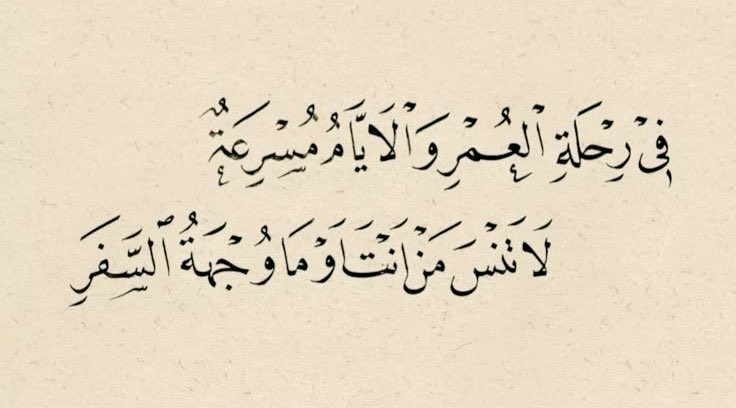 فِىْ رِحْلَةِ الْعُمْرِ وَالْاَيَّامُ مُسْرِعَةٌ
لَا تَنْسَ مَنْ اَنْتَ اَوْ مَا وُجْهَةُ السَّفَرِ